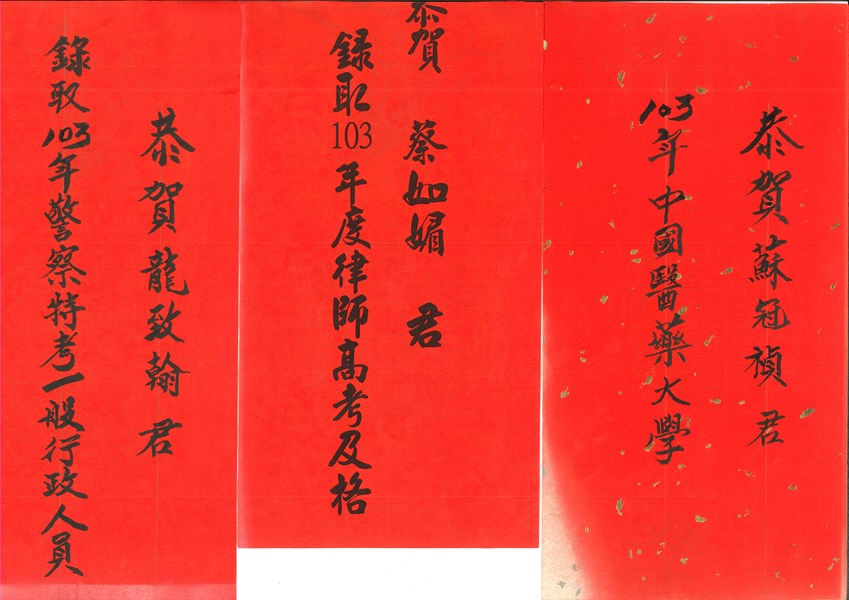 恭賀蘇冠禎君
103年中國醫藥大學
恭賀 蔡如媚 君
録取103年度律師高考及格
恭賀龍致翰君
錄取103年警察特考一般行政人員